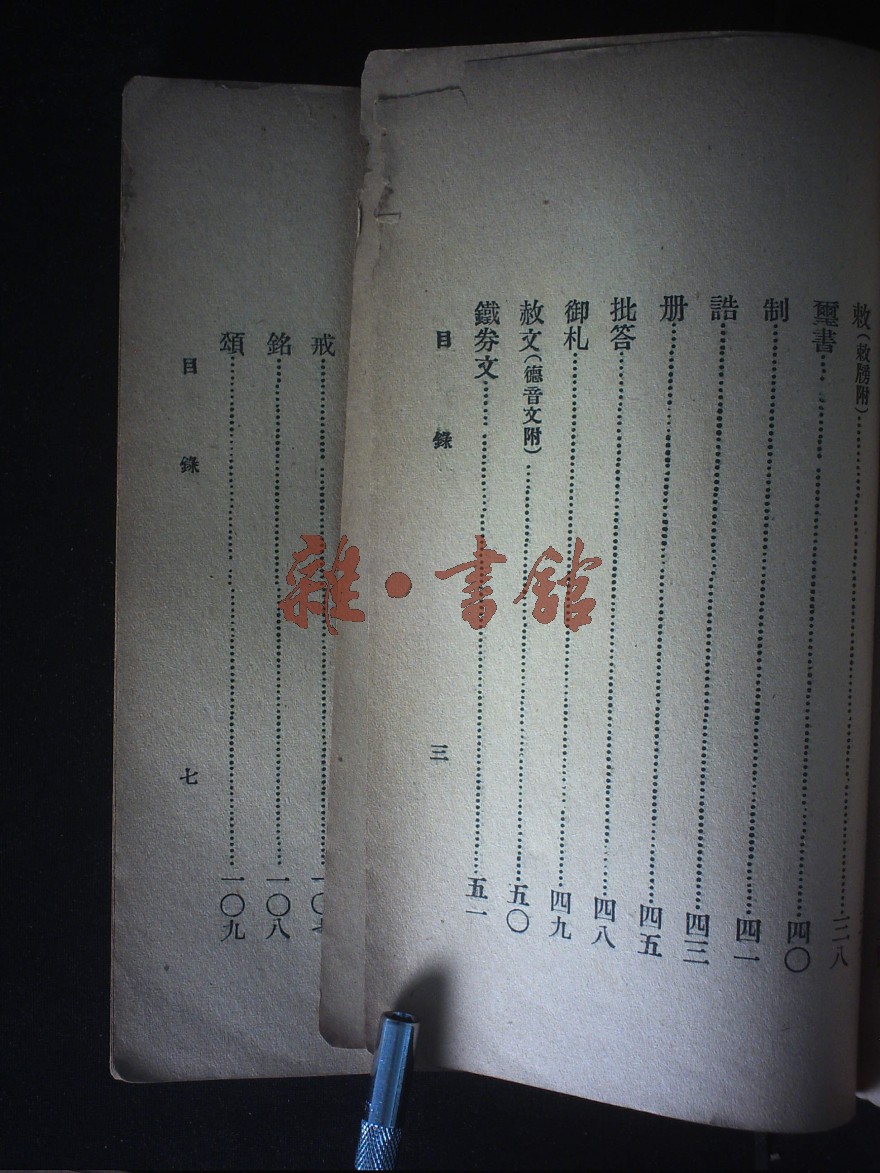 敕（敕牓附）……三八
璽書……四〇
制……四一
誥……四三
册……四五
批答……四八
御札……四九
赦文（德音文附）……五〇
鐵券文……五一
目錄 三
戒……一〇七
銘……一〇八
頌……一〇九
目錄 七
雜·書館